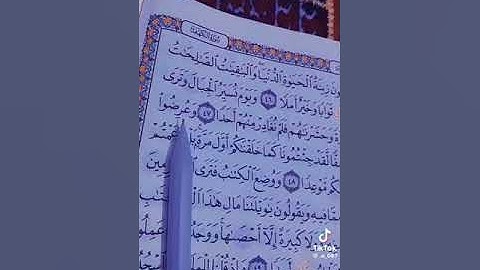 سُورَةُ الكَهْفِ
زِينَةُ الْحَيَوٰةِ الدُّنْيَا وَالْبَٰقِيَٰتُ الصَّٰلِحَٰتُ
ثَوَابًا وَخَيْرٌ أَمَلًا ٤٦ وَيَوْمَ نُسَيِّرُ الْجِبَالَ وَتَرَى
وَحَشَرْنَٰهُمْ فَلَمْ نُغَادِرْ مِنْهُمْ أَحَدًا ٤٧ وَعُرِضُوا
لَّقَدْ جِئْتُمُونَا كَمَا خَلَقْنَٰكُمْ أَوَّلَ مَرَّةٍ
مَّوْعِدًا ٤٨ وَوُضِعَ الْكِتَٰبُ فَتَرَى
فِيهِ وَيَقُولُونَ يَٰوَيْلَتَنَا مَالِ هَٰذَا
كَبِيرَةً إِلَّا أَحْصَىٰهَا عَمِلُوا
٤٩ وَإِذْ قُلْنَا
TikTok